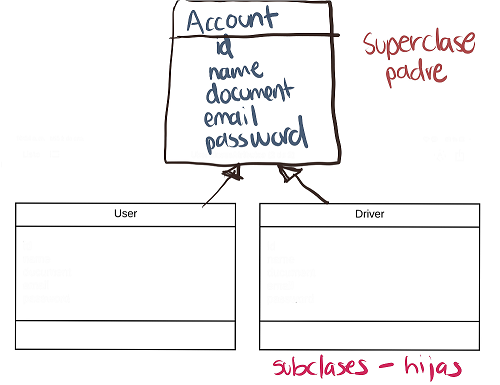 Account
id
name
document
email
password
superclase
padre
User
Driver
subclases - hijas